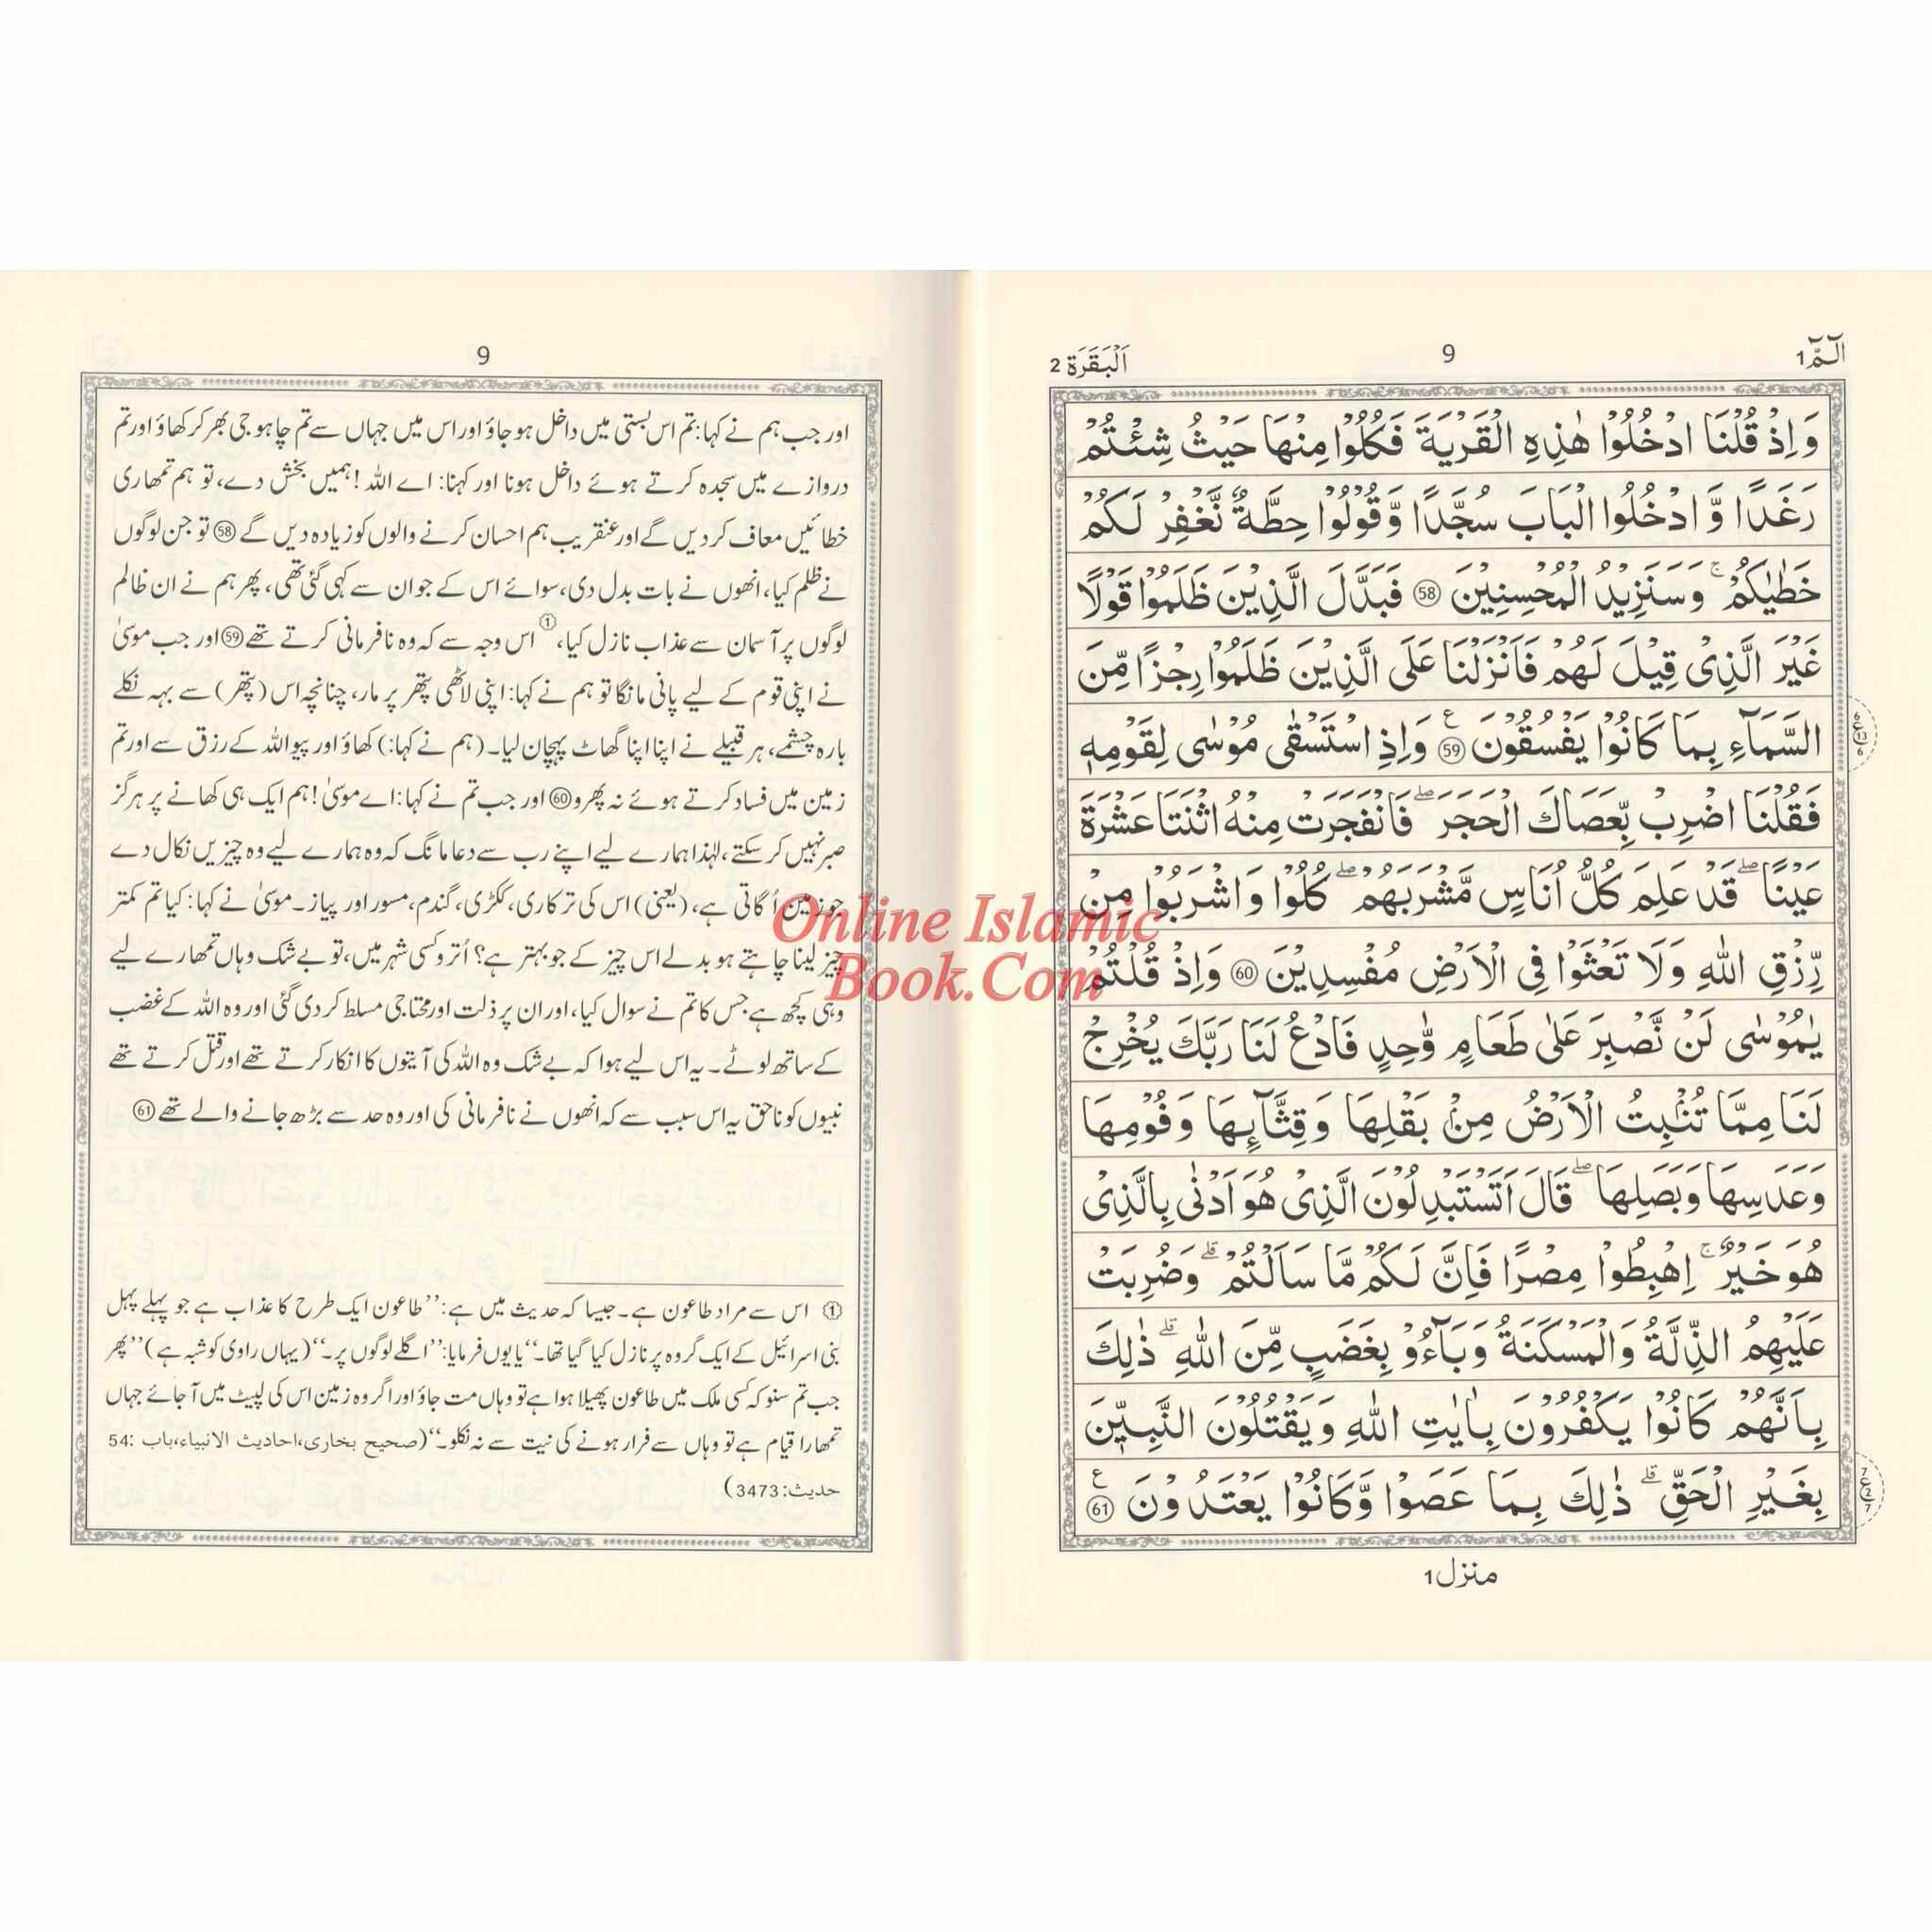 الٓمّٓ 1
9
اَلْبَقَرَة 2
وَاِذْ قُلْنَا ادْخُلُوْا هٰذِهِ الْقَرْيَةَ فَكُلُوْا مِنْهَا حَيْثُ شِئْتُمْ
رَغَدًا وَّ ادْخُلُوا الْبَابَ سُجَّدًا وَّقُوْلُوْا حِطَّةٌ نَّغْفِرْ لَكُمْ
خَطٰيٰكُمْ ۚ وَسَنَزِيْدُ الْمُحْسِنِيْنَ 58 فَبَدَّلَ الَّذِيْنَ ظَلَمُوْا قَوْلًا
غَيْرَ الَّذِىْ قِيْلَ لَهُمْ فَاَنْزَلْنَا عَلَى الَّذِيْنَ ظَلَمُوْا رِجْزًا مِّنَ
السَّمَآءِ بِمَا كَانُوْا يَفْسُقُوْنَ 59 ع وَاِذِ اسْتَسْقٰى مُوْسٰى لِقَوْمِهٖ
فَقُلْنَا اضْرِبْ بِّعَصَاكَ الْحَجَرَ ۖ فَانْفَجَرَتْ مِنْهُ اثْنَتَا عَشْرَةَ
عَيْنًا ۖ قَدْ عَلِمَ كُلُّ اُنَاسٍ مَّشْرَبَهُمْ ۖ كُلُوْا وَاشْرَبُوْا مِنْ
رِّزْقِ اللّٰهِ وَلَا تَعْثَوْا فِى الْاَرْضِ مُفْسِدِيْنَ 60 وَاِذْ قُلْتُمْ
يٰمُوْسٰى لَنْ نَّصْبِرَ عَلٰى طَعَامٍ وَّاحِدٍ فَادْعُ لَنَا رَبَّكَ يُخْرِجْ
لَنَا مِمَّا تُنْۢبِتُ الْاَرْضُ مِنْۢ بَقْلِهَا وَقِثَّآئِهَا وَفُوْمِهَا
وَعَدَسِهَا وَبَصَلِهَا ۖ قَالَ اَتَسْتَبْدِلُوْنَ الَّذِىْ هُوَ اَدْنٰى بِالَّذِىْ
هُوَ خَيْرٌ ۚ اِهْبِطُوْا مِصْرًا فَاِنَّ لَكُمْ مَّا سَاَلْتُمْ ۗ وَضُرِبَتْ
عَلَيْهِمُ الذِّلَّةُ وَالْمَسْكَنَةُ وَبَآءُوْ بِغَضَبٍ مِّنَ اللّٰهِ ۗ ذٰلِكَ
بِاَنَّهُمْ كَانُوْا يَكْفُرُوْنَ بِاٰيٰتِ اللّٰهِ وَيَقْتُلُوْنَ النَّبِيّٖنَ
بِغَيْرِ الْحَقِّ ۗ ذٰلِكَ بِمَا عَصَوْا وَّكَانُوْا يَعْتَدُوْنَ 61 ع
منزل 1
9
اور جب ہم نے کہا: تم اس بستی میں داخل ہو جاؤ اور اس میں جہاں سے تم چاہو جی بھر کر کھاؤ اور تم
دروازے میں سجدہ کرتے ہوئے داخل ہونا اور کہنا: اے اللہ! ہمیں بخش دے، تو ہم تمھاری
خطائیں معاف کر دیں گے اور عنقریب ہم احسان کرنے والوں کو زیادہ دیں گے 58 تو جن لوگوں
نے ظلم کیا، انھوں نے بات بدل دی، سوائے اس کے جو ان سے کہی گئی تھی، پھر ہم نے ان ظالم
لوگوں پر آسمان سے عذاب نازل کیا، ① اس وجہ سے کہ وہ نافرمانی کرتے تھے 59 اور جب موسیٰ
نے اپنی قوم کے لیے پانی مانگا تو ہم نے کہا: اپنی لاٹھی پتھر پر مار، چنانچہ اس (پتھر) سے بہہ نکلے
بارہ چشمے، ہر قبیلے نے اپنا اپنا گھاٹ پہچان لیا۔ (ہم نے کہا:) کھاؤ اور پیو اللہ کے رزق سے اور تم
زمین میں فساد کرتے ہوئے نہ پھرو 60 اور جب تم نے کہا: اے موسیٰ! ہم ایک ہی کھانے پر ہرگز
صبر نہیں کر سکتے، لہٰذا ہمارے لیے اپنے رب سے دعا مانگ کہ وہ ہمارے لیے وہ چیزیں نکال دے
جو زمین اُگاتی ہے، (یعنی) اس کی ترکاری، ککڑی، گندم، مسور اور پیاز۔ موسیٰ نے کہا: کیا تم کمتر
چیز لینا چاہتے ہو بدلے اس چیز کے جو بہتر ہے؟ اُترو کسی شہر میں، تو بے شک وہاں تمھارے لیے
وہی کچھ ہے جس کا تم نے سوال کیا، اور ان پر ذلت اور محتاجی مسلط کر دی گئی اور وہ اللہ کے غضب
کے ساتھ لوٹے۔ یہ اس لیے ہوا کہ بے شک وہ اللہ کی آیتوں کا انکار کرتے تھے اور قتل کرتے تھے
نبیوں کو ناحق یہ اس سبب سے کہ انھوں نے نافرمانی کی اور وہ حد سے بڑھ جانے والے تھے 61
① اس سے مراد طاعون ہے۔ جیسا کہ حدیث میں ہے: ’’طاعون ایک طرح کا عذاب ہے جو پہلے پہل
بنی اسرائیل کے ایک گروہ پر نازل کیا گیا تھا۔‘‘ یا یوں فرمایا: ’’اگلے لوگوں پر۔‘‘ (یہاں راوی کو شبہ ہے) ’’پھر
جب تم سنو کہ کسی ملک میں طاعون پھیلا ہوا ہے تو وہاں مت جاؤ اور اگر وہ زمین اس کی لپیٹ میں آ جائے جہاں
تمھارا قیام ہے تو وہاں سے فرار ہونے کی نیت سے نہ نکلو۔‘‘ (صحیح بخاری، احادیث الانبیاء، باب: 54
حدیث: 3473)
Online Islamic
Book.Com